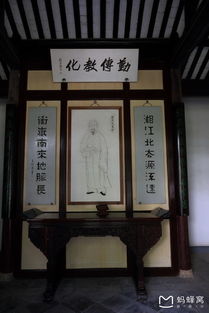 勤傳教化
湘江北去源流遠
衡嶽南來地脈長
蚂蜂窝